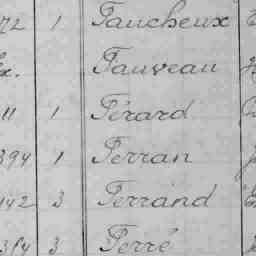 72 1 Faucheux
Fauveau
11 1 Férard
394 1 Ferran
142 3 Ferrand
384 3 Ferré